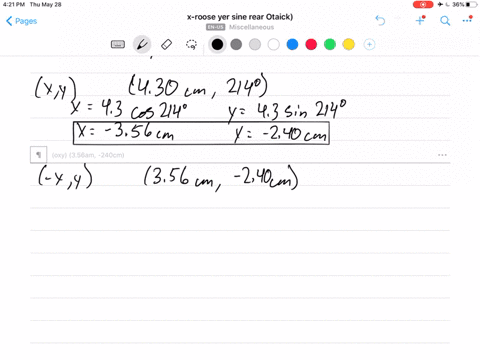 4:21 PM Thu May 28
36%
Pages
x-roose yer sine rear Otaick)
EN-US Miscellaneous
(x,y) (4.30 cm, 214°)
x = 4.3 cos 214° y = 4.3 sin 214°
x = -3.56 cm y = -2.40 cm
¶ (oxy) (3.56am, -240cm) ...
(-x,y) (3.56 cm, -2.40cm)